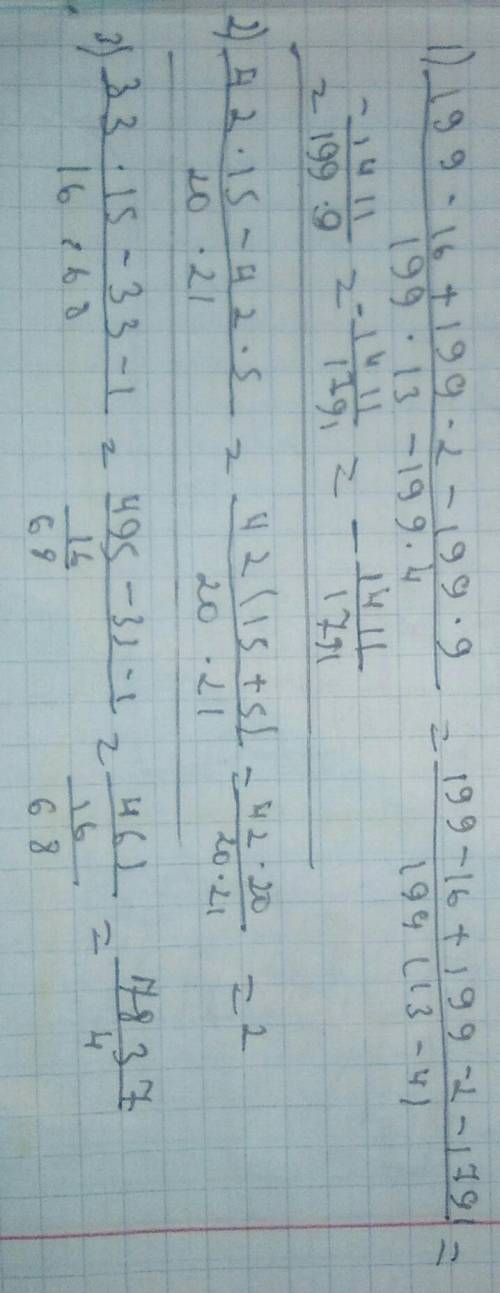 1) 199 - 16 + 199 - 2 - 199 · 9 / 199 · 13 - 199 · 4 = 199 - 16 + 199 - 2 - 1791 / 199 (13 - 4) =
= -1411 / 199 · 9 = -1411 / 1791 = - 1411 / 1791
2) 42 · 15 - 42 · 5 / 20 · 21 = 42 (15 + 5) / 20 · 21 = 42 · 20 / 20 · 21 = 2
3) 33 · 15 - 33 - 1 / 16 : 68 = 495 - 33 - 1 / 16 / 68 = 461 / 16 / 68 = 7837 / 4